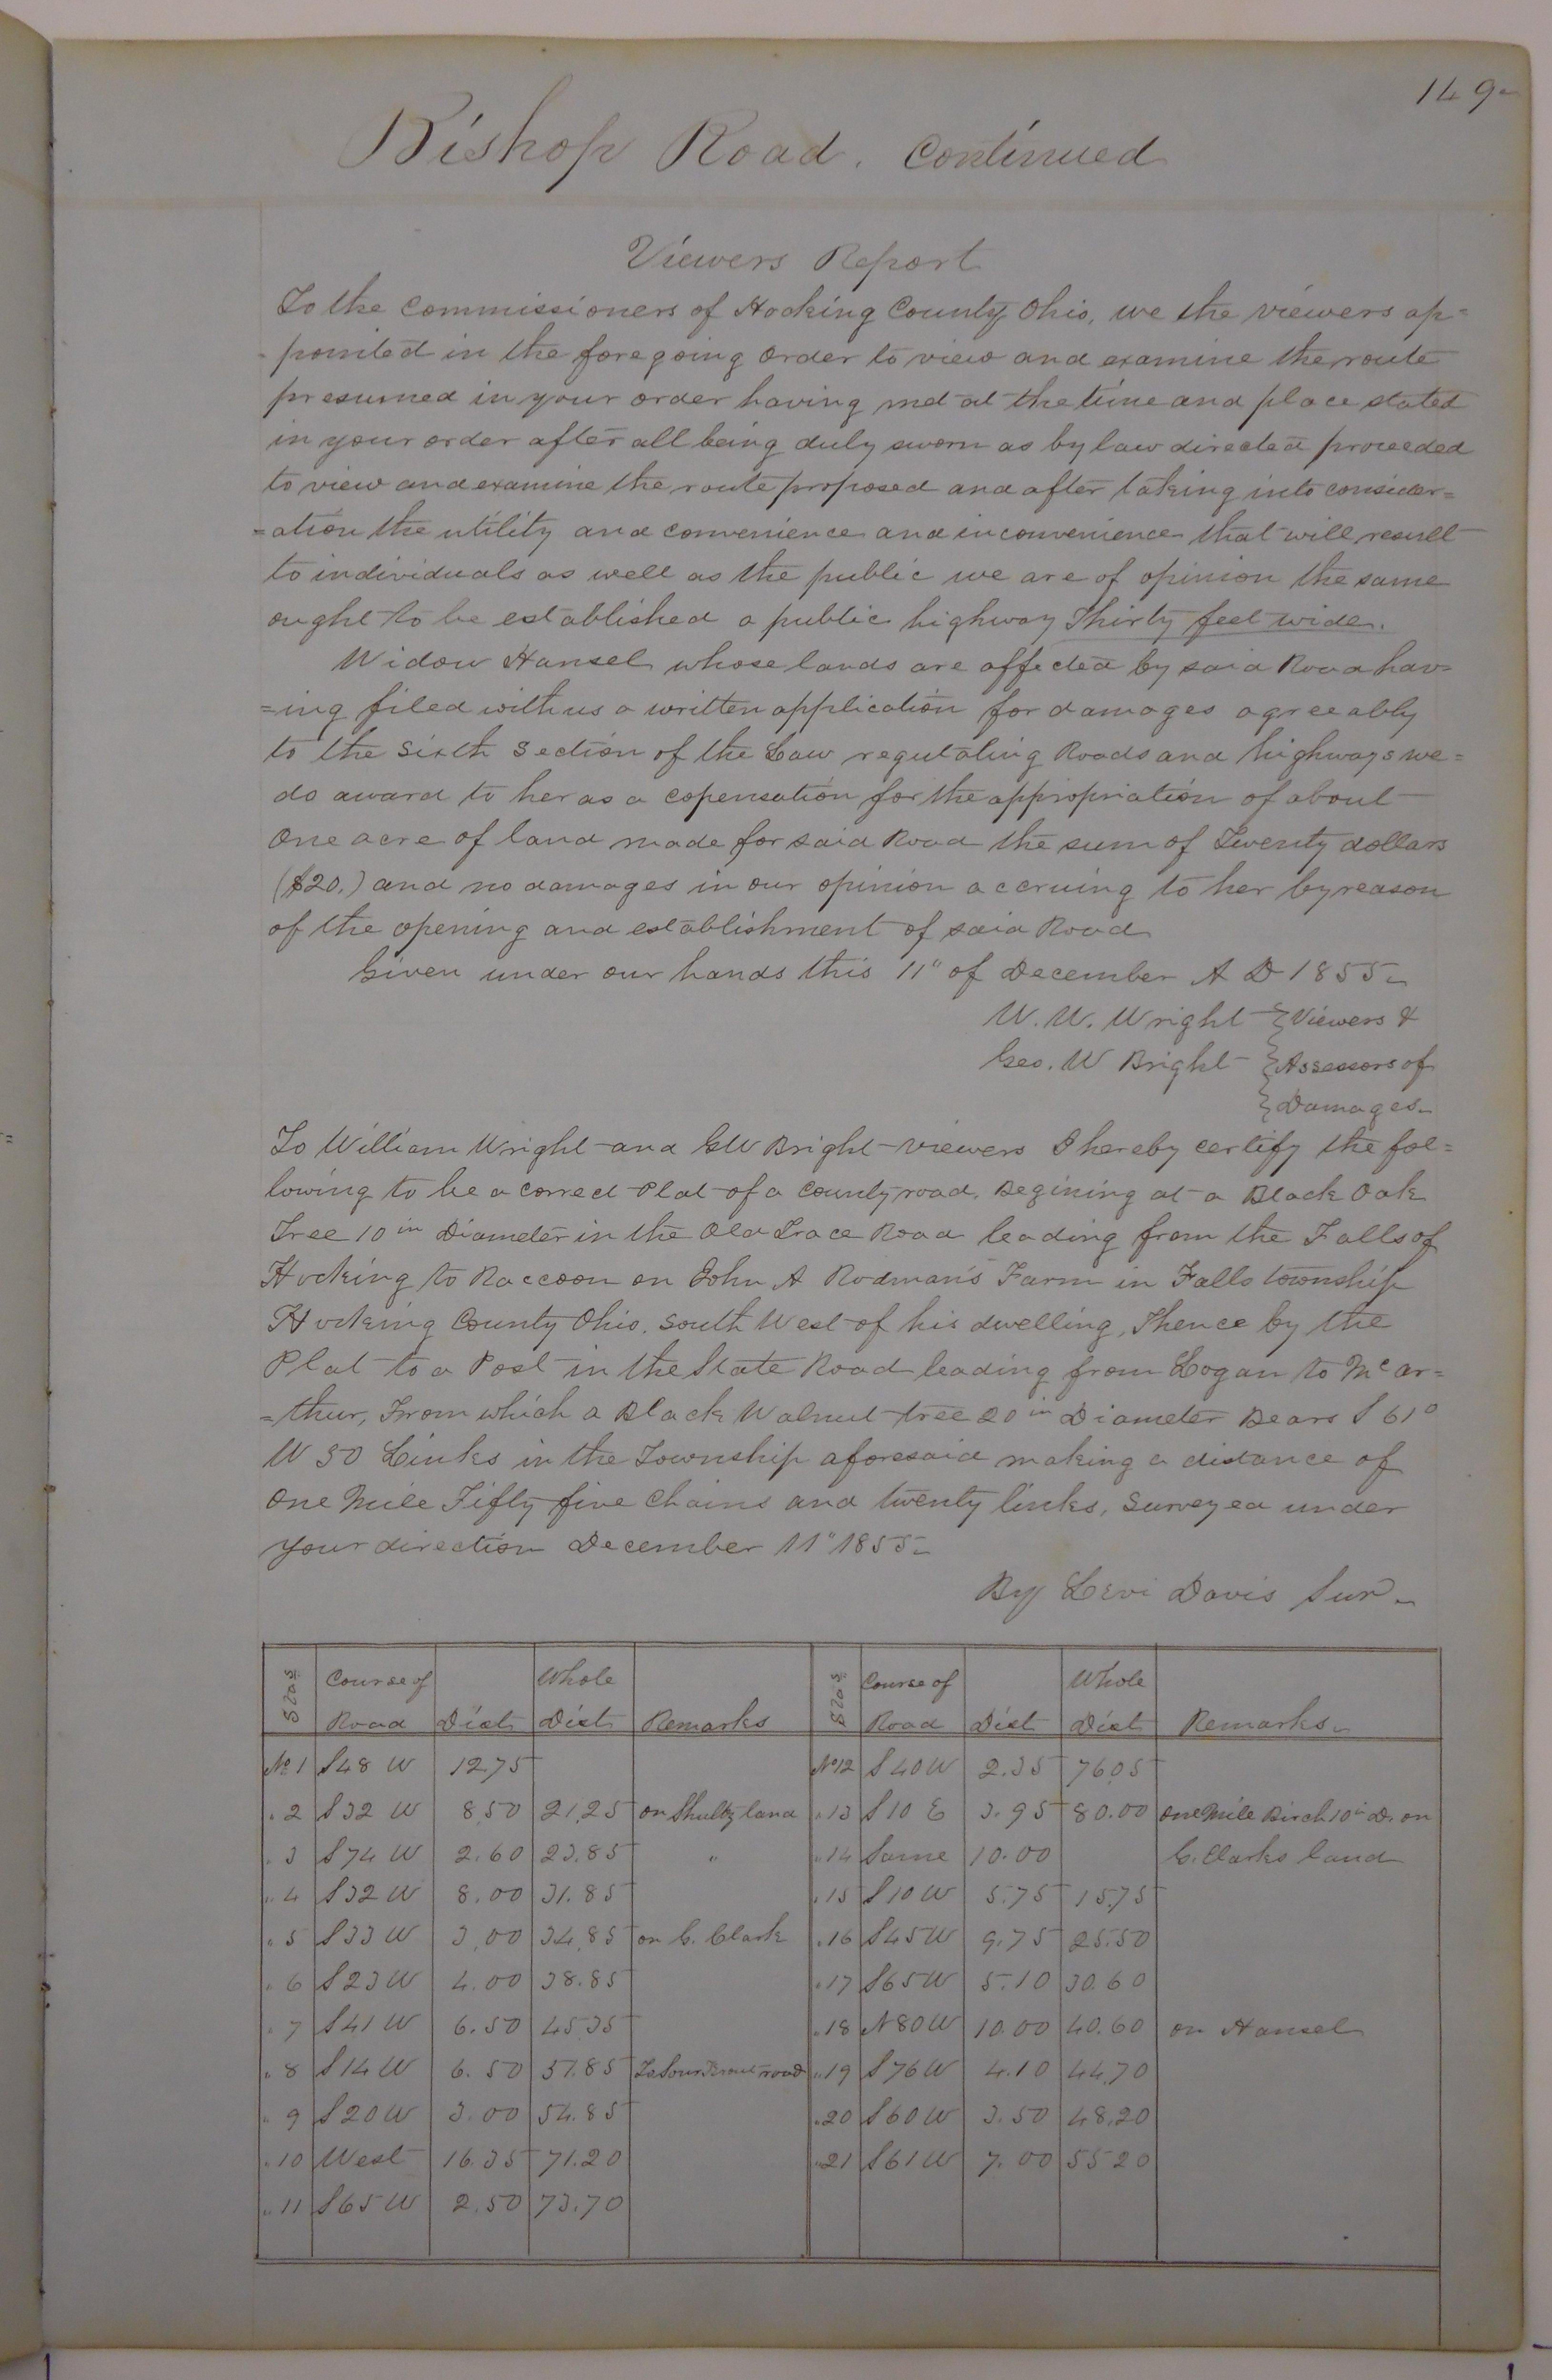 149
Bishop Road. Continued
Viewers Report
To the Commissioners of Hocking County, Ohio, we the viewers ap=
-pointed in the foregoing order to view and examine the route
presumed in your order having met at the time and place stated
in your order after all being duly sworn as by law directed proceeded
to view and examine the route proposed and after taking into consider=
=ation the utility and convenience and inconvenience that will result
to individuals as well as the public we are of opinion the same
ought to be established a public highway Thirty feet wide.
Widow Hansel whose lands are affected by said Road hav=
=ing filed with us a written application for damages agreeably
to the Sixth Section of the Law regulating Roads and highways we=
do award to her as a copensation for the appropriation of about
One acre of land made for said Road the sum of Twenty dollars
($20.) and no damages in our opinion accruing to her by reason
of the opening and establishment of said Road
Given under our hands this 11" of December A D 1855
W. W. Wright } Viewers &
Geo. W Bright } Assessors of
} Damages
To William Wright and GW Bright viewers I hereby certify the fol=
lowing to be a correct Plat of a County road. Begining at a Black Oak
Tree 10 in Diameter in the Old Trace Road leading from the Falls of
Hocking to Raccoon on John A Rodman's Farm in Falls township
Hocking County Ohio. South West of his dwelling, Thence by the
Plat to a Post in the State Road leading from Logan to Mc ar=
=thur, From which a Black Walnut tree 20 in Diameter Bears S 61°
W 50 Links in the Township aforesaid making a distance of
One Mile Fifty five Chains and twenty links, Surveyed under
your direction December 11" 1855
By Levi Davis Sur
Stas Course of Road Dist Whole Dist Remarks Stas Course of Road Dist Whole Dist Remarks
No 1 S48 W 12.75 No 12 S 40 W 2.35 76.05
" 2 S32 W 8.50 21.25 on Shultz land " 13 S10 E 3.95 80.00 One Mile Birch 10 in D. on
" 3 S74 W 2.60 23.85 " " 14 Same 10.00 C. Clarks land
" 4 S32 W 8.00 31.85 " 15 S10 W 5.75 15.75
" 5 S33 W 3.00 34.85 on C. Clark " 16 S45 W 9.75 25.50
" 6 S23 W 4.00 38.85 " 17 S65 W 5.10 30.60
" 7 S41 W 6.50 45.35 " 18 N80 W 10.00 40.60 on Hansel
" 8 S14 W 6.50 51.85 road " 19 S76 W 4.10 44.70
" 9 S20 W 3.00 54.85 " 20 S60 W 3.50 48.20
" 10 West 16.35 71.20 " 21 S61 W 7.00 55.20
" 11 S65 W 2.50 73.70